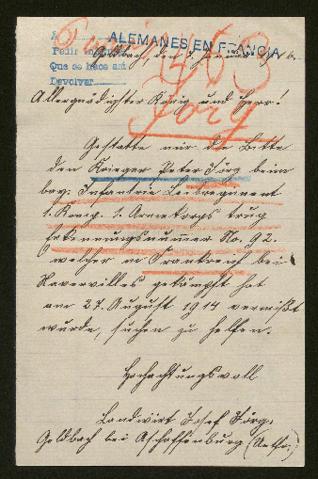 ALEMANES EN FRANCIA
Pedir
Que se hace así
Devolver
Goldbach, den
Allergnädigster König und Herr!
Jörg
Gestatte mir die Bitte
den Krieger Peter Jörg beim
bay. Infanterie Leibregiment
1. König. 1. Armeekorps trug
Erkennungsnummer No. 92.
welcher in Frankreich bei
gekämpft hat
am 27. August 1914 vermißt
wurde, suchen zu helfen.
Hochachtungsvoll
Landwirt Josef Jörg.
Goldbach bei Aschaffenburg